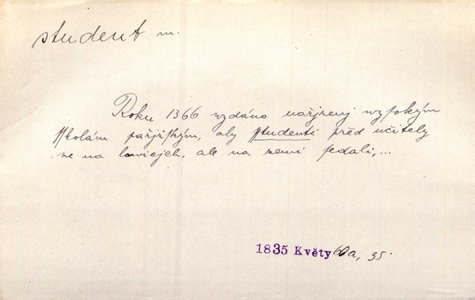 student m.
Roku 1366 vydáno nařjzenj wysokým
školám pařjžským, aby studenti před učitely
ne na lawicjch, ale na zemi sedali,...
1835 Květy 60a, 35.